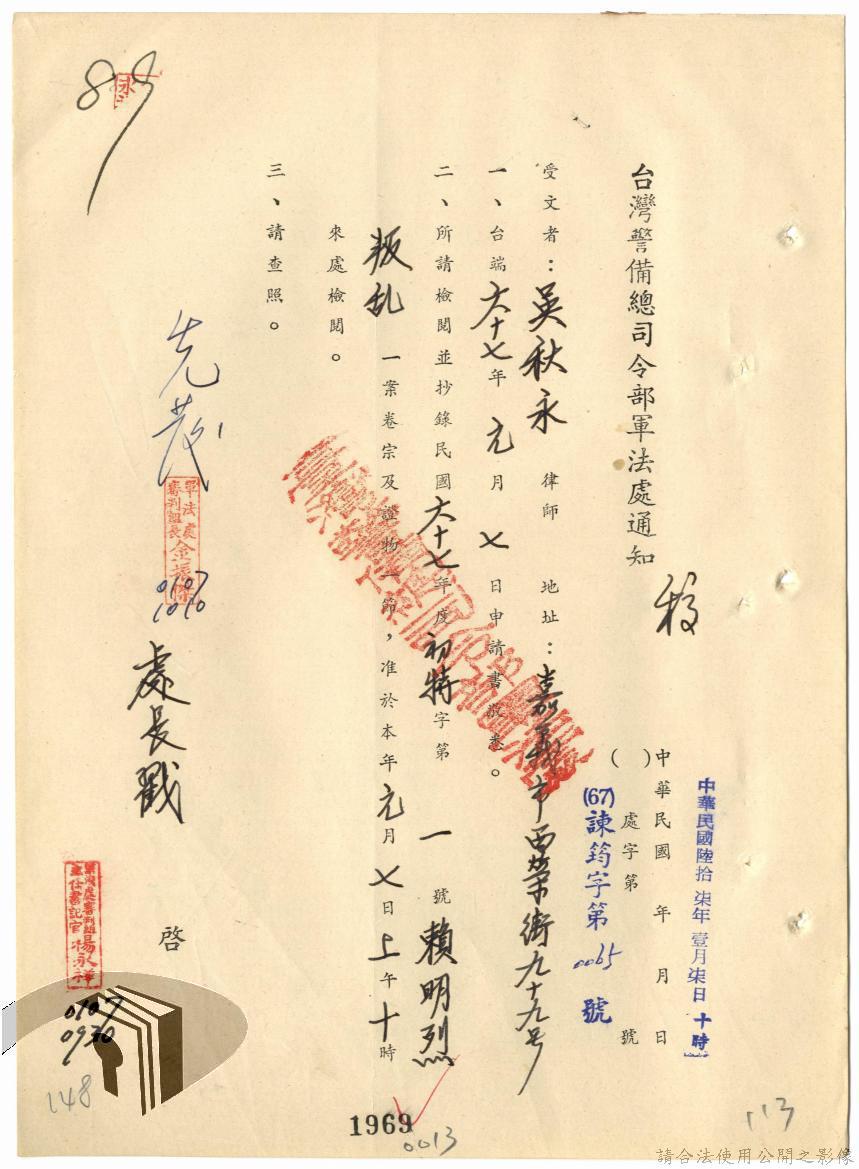 台灣警備總司令部軍法處通知
稿
中華民國陸拾柒年壹月柒日十時
中華民國 年 月 日
( ) 處字第 號
(67)諫筠字第0065號
受文者：吳秋永律師 地址：嘉義市西榮街九十九号
一、台端六十七年元月七日申請書敬悉。
二、所請檢閱並抄錄民國六十七年度初特字第一號賴明烈
叛乱一案卷宗及證物一節，准於本年元月七日上午十時
來處檢閱。
三、請查照。
軍法處
審判組長金
0107
1010
處長戳
啓
軍法處審判組
主任書記官楊永祥
0107
0930
89
148
1969
0013
113
請合法使用公開之影像